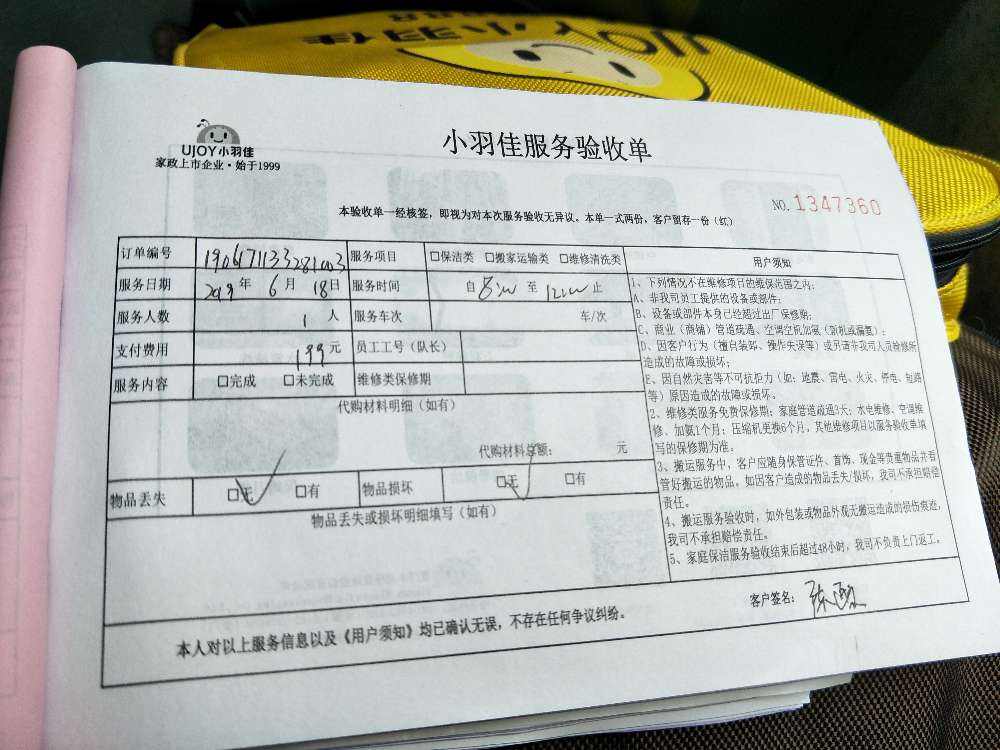 UJOY小羽佳
UJOY小羽佳
家政上市企业·始于1999
小羽佳服务验收单
本验收单一经核签，即视为对本次服务验收无异议。本单一式两份，客户留存一份（红）
NO. 1347360
订单编号 服务项目 □保洁类 □搬家运输类 □维修清洗类
服务日期 2019年 6月 18日 服务时间 自 8:00 至 12:00 止
服务人数 1 人 服务车次 车/次
支付费用 199元 员工工号（队长）
服务内容 □完成 □未完成 维修类保修期
代购材料明细（如有）
代购材料总额： 元
物品丢失 □无 □有 物品损坏 □无 □有
物品丢失或损坏明细填写（如有）
用户须知
1、下列情况不在维修项目的维保范围之内：
A、非我司员工提供的设备或部件；
B、设备或部件本身已经超过出厂保修期；
C、商业（商铺）管道疏通、空调空机加氨（新机或漏氨）；
D、因客户行为（擅自装卸、操作失误等）或另请非我司人员检修所
造成的故障或损坏；
E、因自然灾害等不可抗拒力（如：地震、雷电、火灾、停电、短路
等）原因造成的故障或损坏。
2、维修类服务免费保修期：家庭管道疏通3天；水电维修、空调维
修、加氨1个月；压缩机更换6个月，其他维修项目以服务验收单填
写的保修期为准。
3、搬运服务中，客户应随身保管证件、首饰、现金等贵重物品并看
管好搬运的物品。如因客户造成的物品丢失/损坏，我司不承担赔偿
责任。
4、搬运服务验收时，如外包装或物品外观无搬运造成的损伤痕迹，
我司不承担赔偿责任。
5、家庭保洁服务验收结束后超过48小时，我司不负责上门返工。
客户签名：
本人对以上服务信息以及《用户须知》均已确认无误，不存在任何争议纠纷。